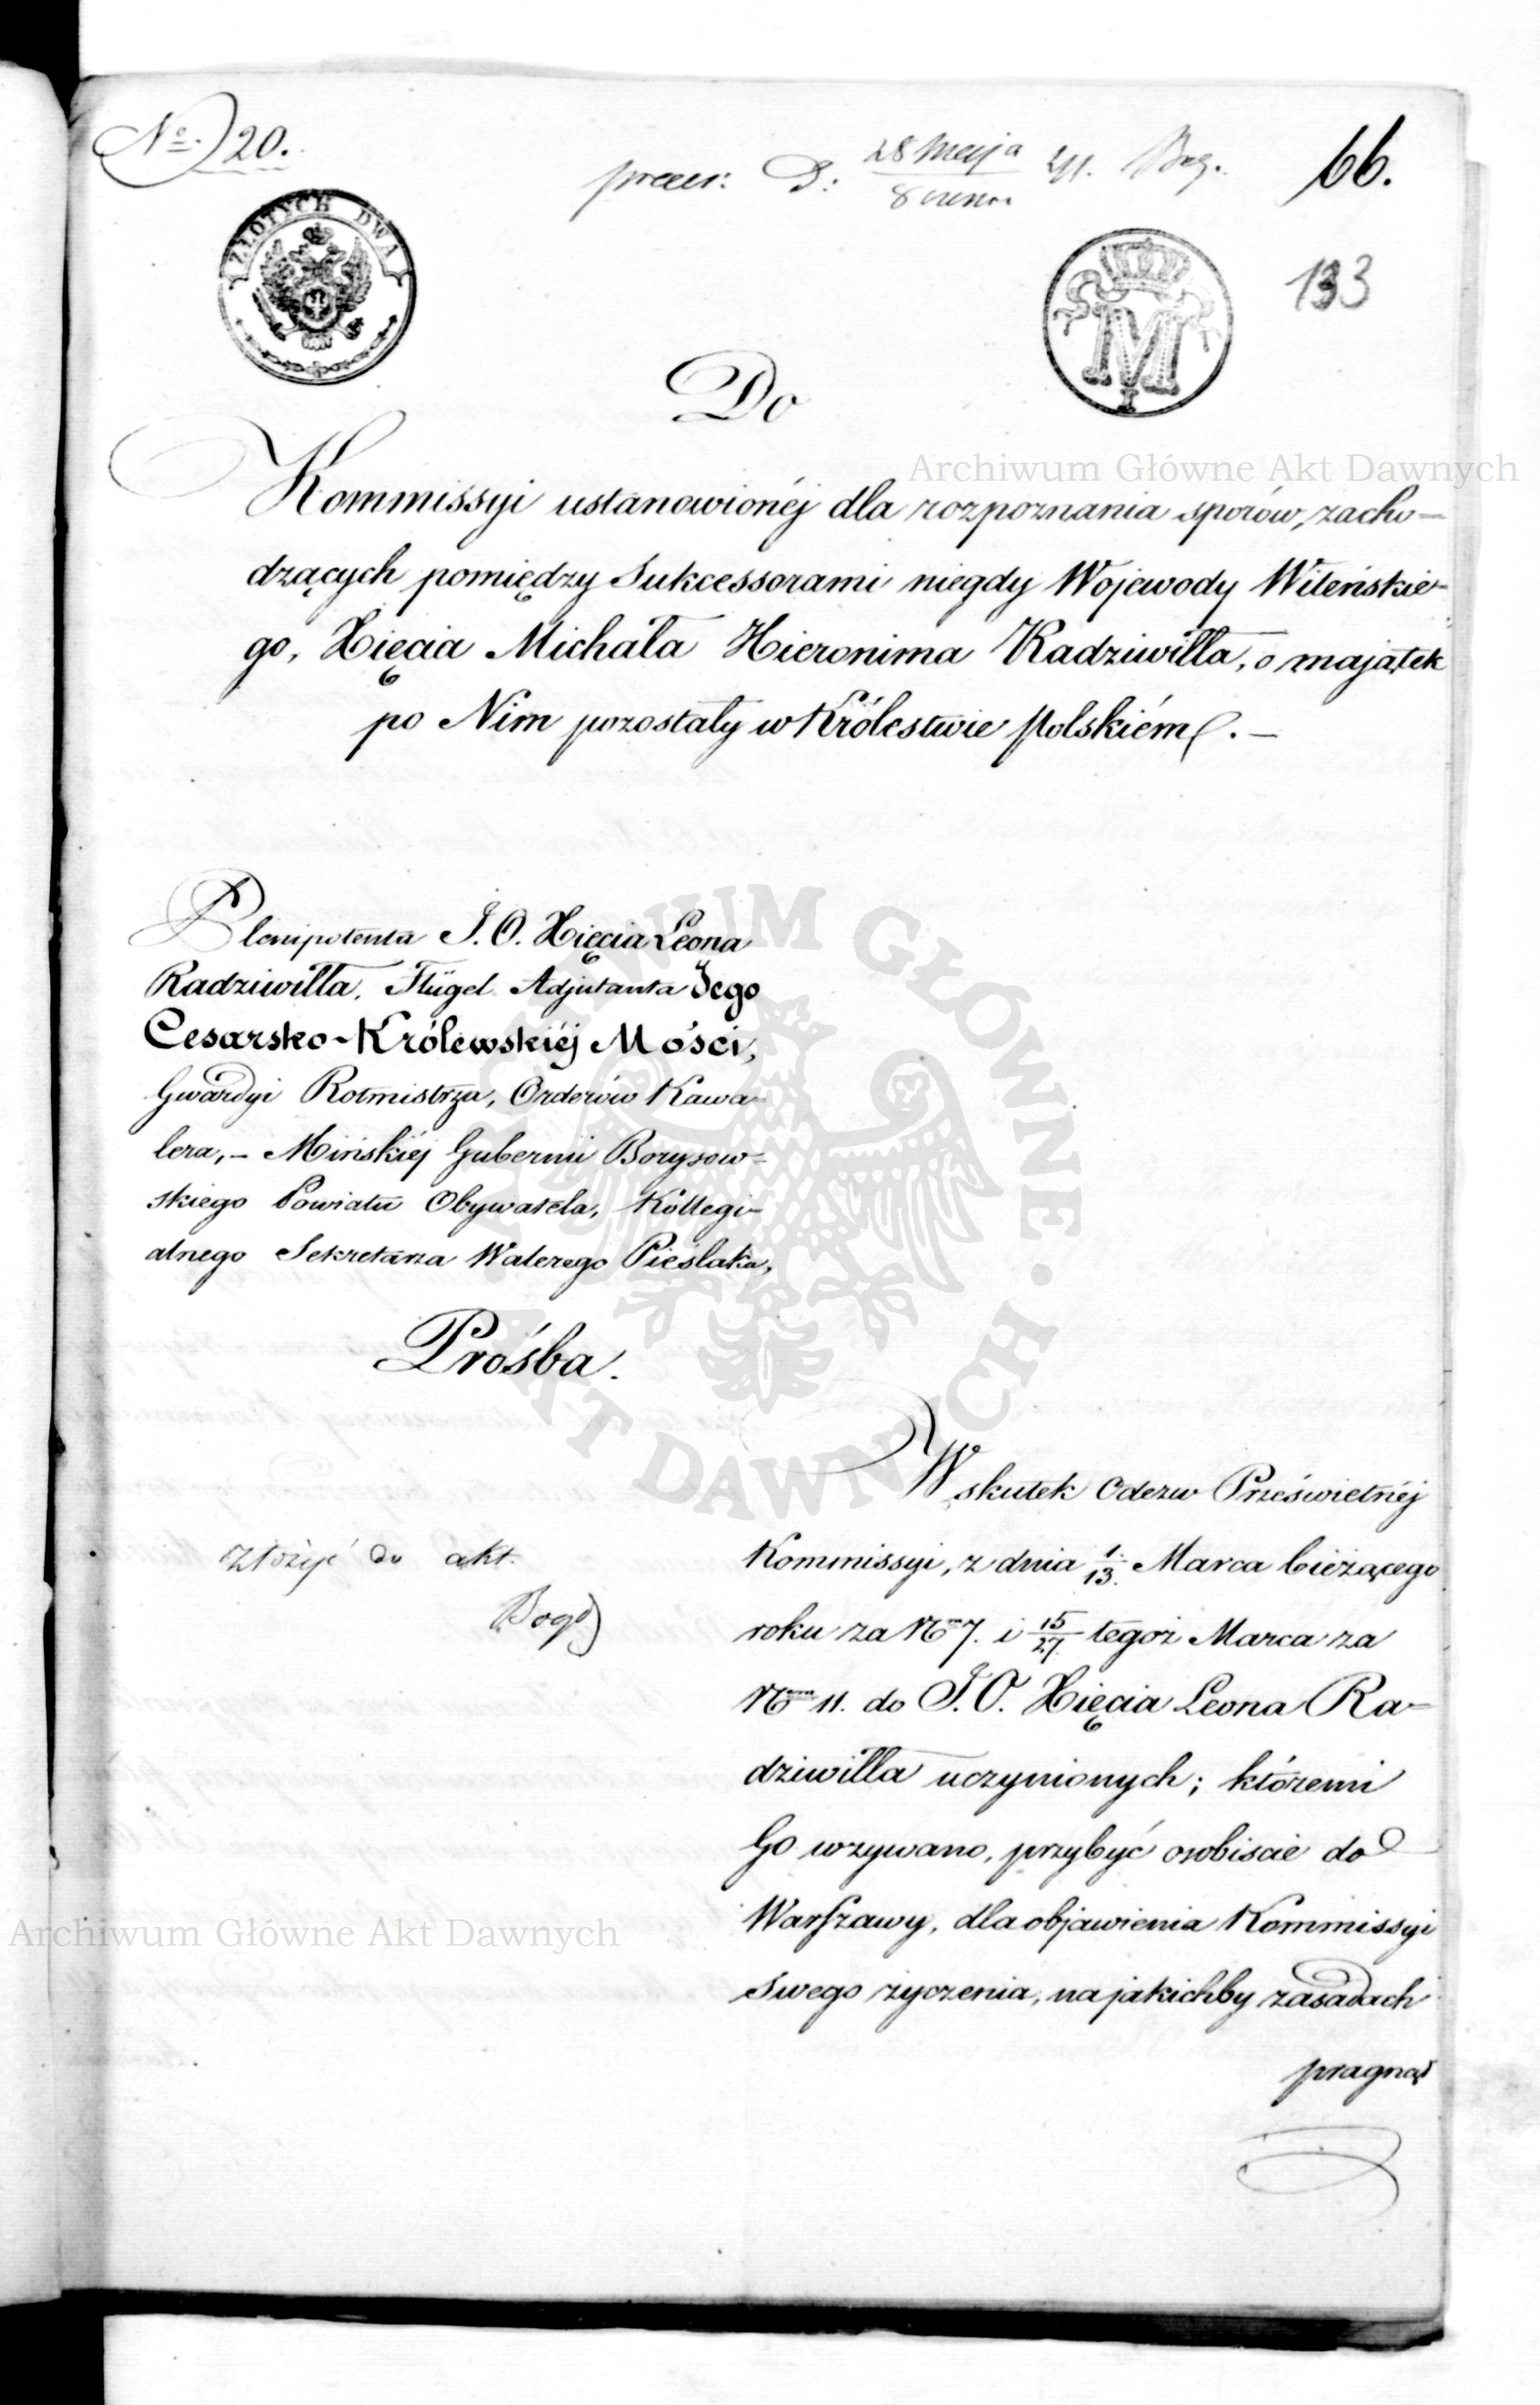 No. 20.
praes: D: 28 Maja / 8 czerw. 66.
ZŁOTYCH DWA
M
I
133
Do
Kommissyi ustanowionéj dla rozpoznania sporów, zacho-
dzących pomiędzy Sukcessorami niegdy Wojewody Wileńskie-
go, Xięcia Michała Hieronima Radziwiłła, o majątek
po Nim pozostały w Królestwie Polskiém. —
Plenipotenta J. O. Xięcia Leona
Radziwiłła, Flügel Adjutanta Jego
Cesarsko-Królewskiéj Mości,
Gwardyi Rotmistrza, Orderów Kawa-
lera, - Mińskiéj Gubernii Borysow-
skiego Powiatu Obywatela, Kollegi-
alnego Sekretarza Walerego Pieślaka,
Prośba.
W skutek Odezw Prześwietnéj
Kommissyi, z dnia 1/13. Marca bieżącego
roku za Nrm 7. i 15/27 tegoż Marca za
Nrem 11. do J. O. Xięcia Leona Ra-
dziwiłła uczynionych; któremi
Go wzywano, przybyć osobiscie do
Warszawy, dla objawienia Kommissyi
Swego życzenia, na jakichby zasadach
pragnął
złożyć do akt.
Bog
Archiwum Główne Akt Dawnych
ARCHIWUM GŁÓWNE AKT DAWNYCH
Archiwum Główne Akt Dawnych